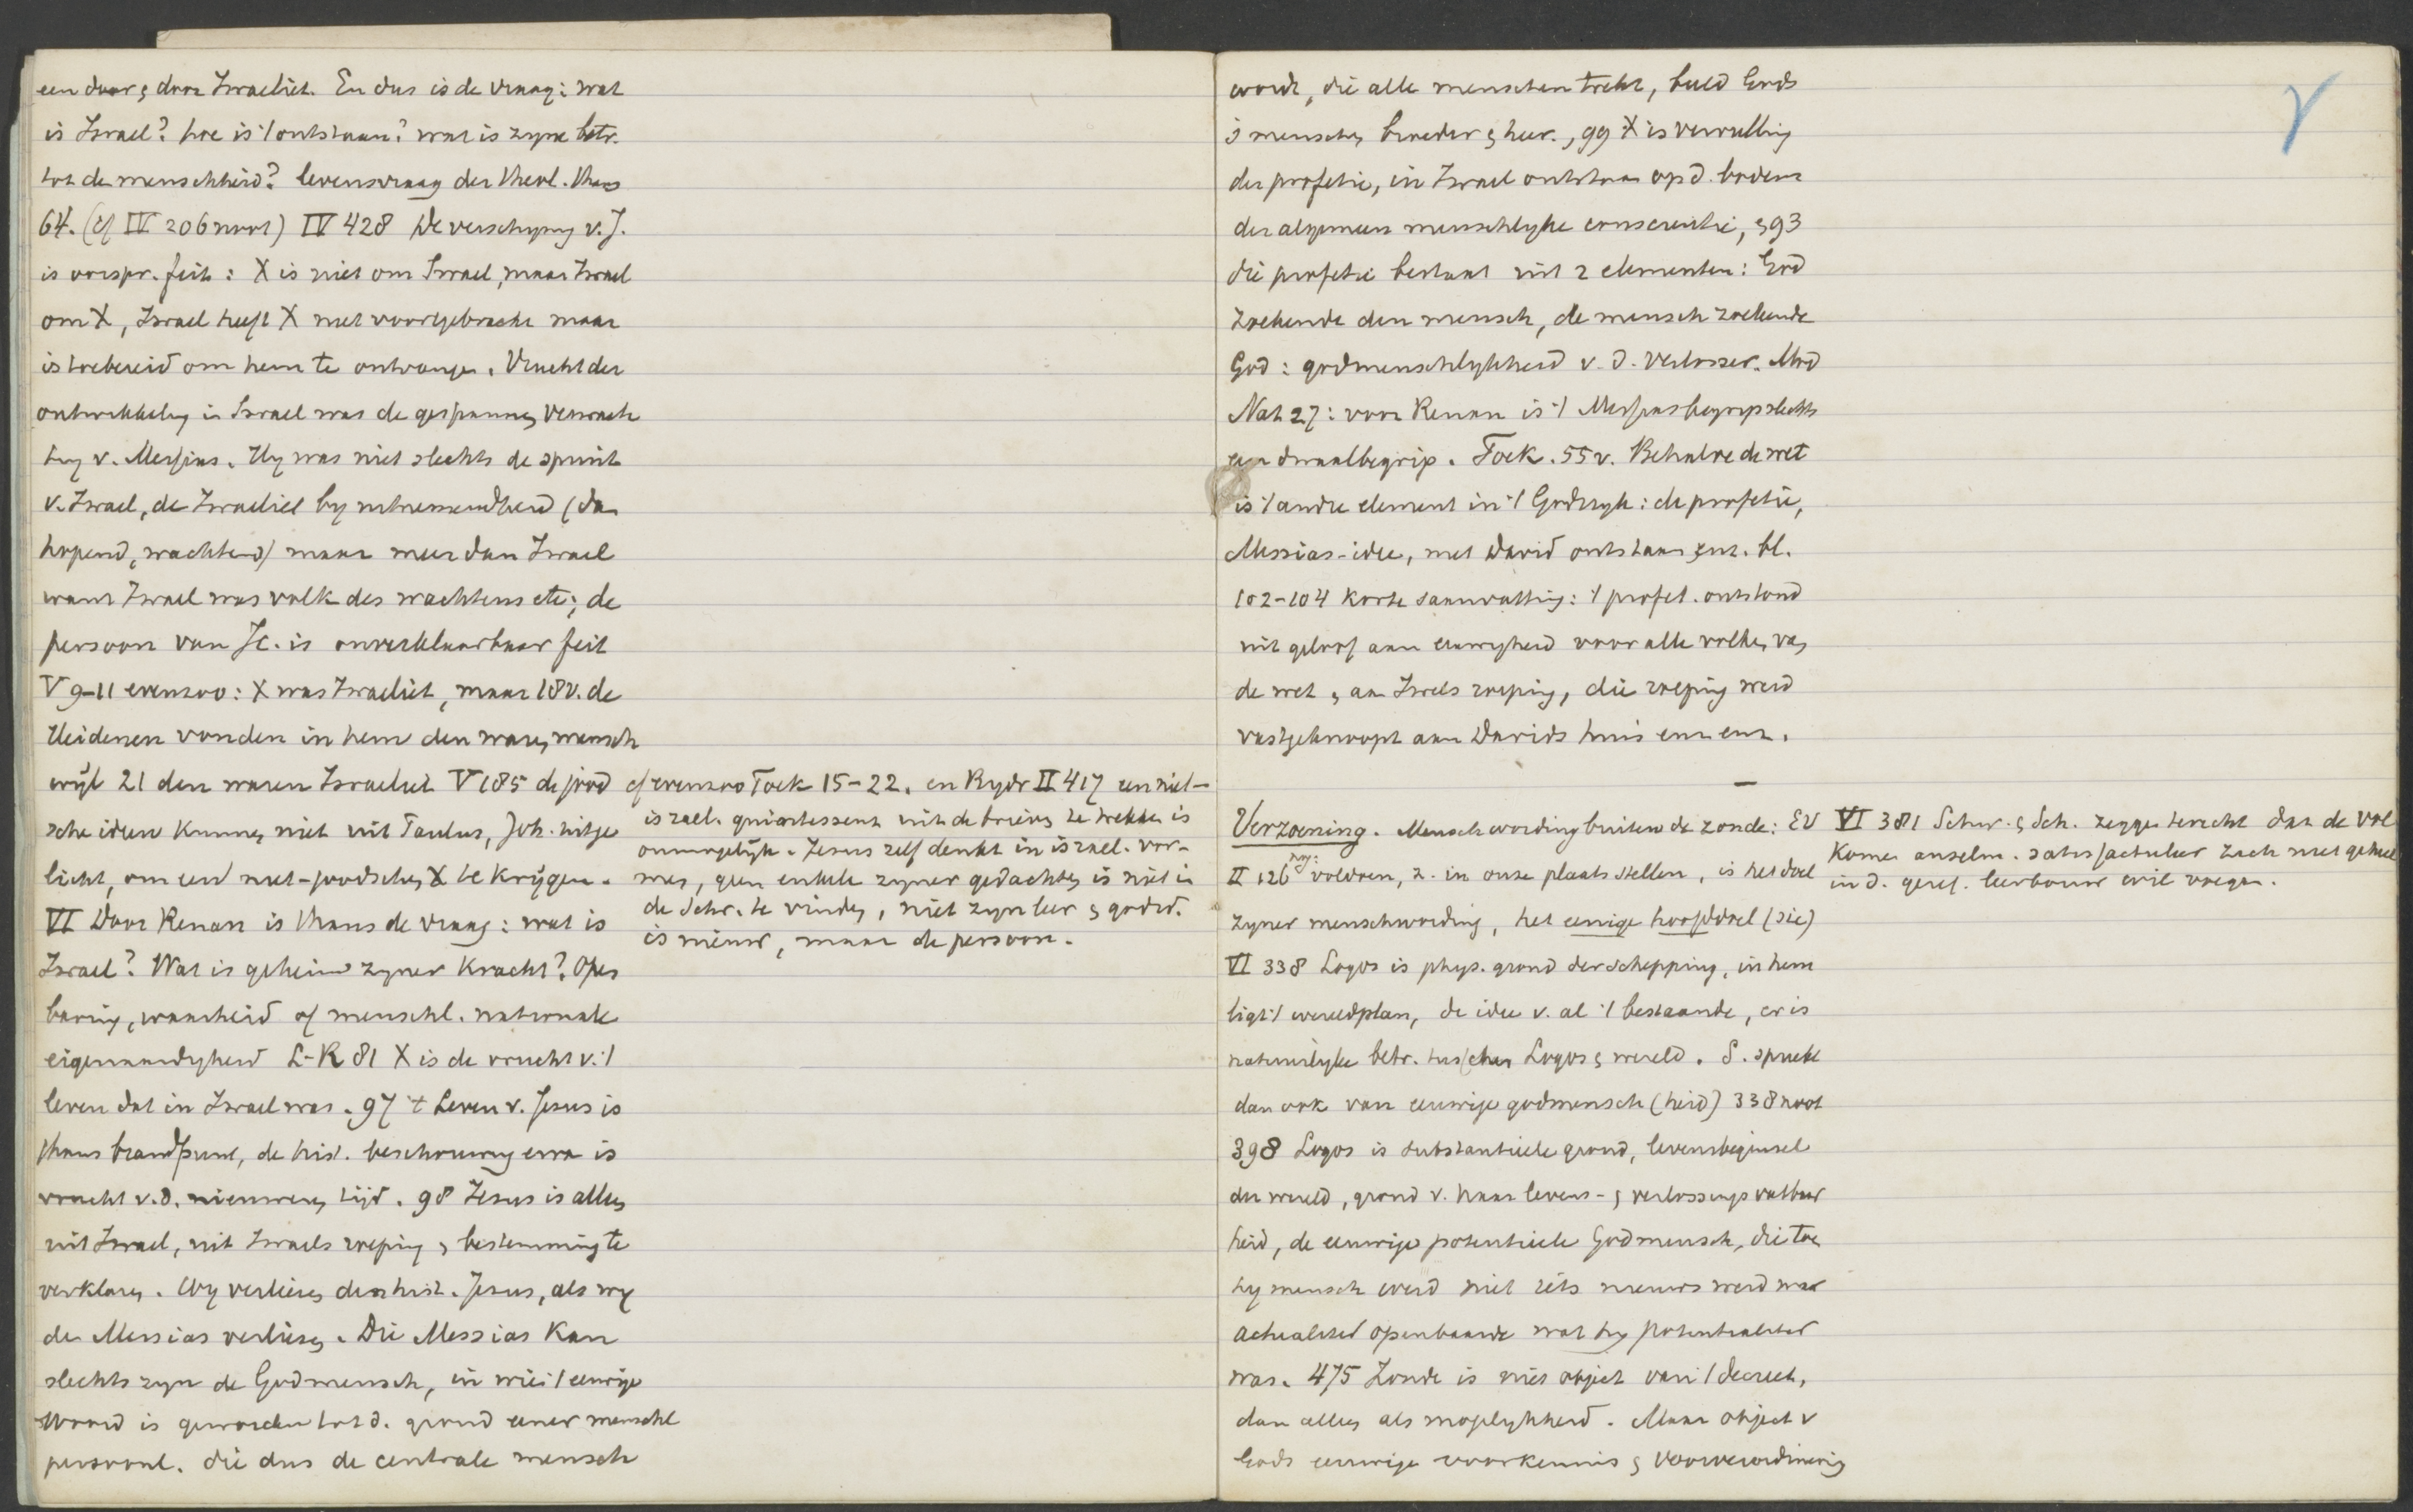 een door & door Israeliet. En dus is de vraag: wat
is Israel? hoe is 't ontstaan? wat is zyne betr.
tot de menschheid? levensvraag der theol. thans
64. (cf IV 206 noot) IV 428 De verschyning v. J.
is oorspr. feit: X is niet om Israel, maar Israel
om X, Israel heeft X niet voortgebracht maar
is toebereid om hem te ontvangen. Vrucht der
ontwikkeling in Israel was de gespannen verwach
ting v. Messias. Hy was niet slechts de spruit
v. Israel, de Israeliet by uitnemendheid (dan
hopend, wachtend) maar meer dan Israel
want Israel was volk des wachtens etc; de
persoon van JC. is onverklaarbaar feit
V 9-11 evenzoo: X was Israeliet, maar 18v. de
Heidenen vonden in hem den waren mensch
wijl 21 den waren Israeliet V 185 de jood
sche ideen kunnen niet uit Paulus, Joh. uitge
licht, om een niet-joodschen X te krijgen.
VI Door Renan is thans de vraag: wat is
Israel? Wat is geheim zyner kracht? Open
baring, waarheid of menschl. nationale
eigenaardigheid L-R 81 X is de vrucht v. 't
leven dat in Israel was. 97 't Leven v. Jesus is
thans brandpunt, de hist. beschouwing ervan is
vrucht v.d. nieuweren tijd. 98 Jesus is alleen
uit Israel, uit Israels roeping & bestemming te
verklaren. Wy verliezen den hist. Jesus, als wy
den Messias verliezen. Die Messias kan
slechts zyn de Godmensch, in wien 't eeuwige
Woord is geworden tot d. grond eener menschl
persoonl. die dus de centrale mensch
cf evenzoo Toek 15-22. en Bydr II 417 een niet-
israel. quintessent uit de brieven te trekken is
onmogelijk. Jesus zelf denkt in israel. vor-
men, geen enkele zyner gedachten is niet in
de Schr. te vinden, niet zyn leer & godsd.
is nieuw, maar de persoon.
wordt, die alle menschen trekt, beeld Gods
& menschen broeder & heer., 99 X is vervulling
der profetie, in Israel ontstaan op d. bodem
der algemeen menschlyke conscientie, & 93
die profetie bestaat uit 2 elementen: God
zoekende den mensch, de mensch zoekende
God: godmenschlykheid v. d. Verlosser. Mod
Nat 27: voor Renan is 't Messiasbegrip slechts
een dwaalbegrip. Toek. 55 v. Behalve de wet
is 't andre element in 't Godsryk: de profetie,
Messias-idee, met David ontstaan enz. bl.
102-104 korte samenvatting: 't profet. ontstond
uit geloof aan eeuwigheid voor alle volken van
de wet, aan Israels roeping, die roeping werd
vastgeknoopt aan Davids huis enz enz.
Verzoening. Menschwording buiten de zonde: EV
II 126 nog: voldoen, z. in onze plaats stellen, is het doel
zyner menschwording, het eenige hoofddoel (sic)
VI 338 Logos is phys. grond der schepping, in hem
ligt 't wereldplan, de idee v. al 't bestaande, er is
natuurlyke betr. tusschen Logos & wereld. S. spreekt
dan ook van eeuwige godmensch(heid) 338 noot
398 Logos is substantieele grond, levensbeginsel
der wereld, grond v. haar levens- & verlossingsvatbaar
heid, de eeuwige potentieele Godmensch, die toen
hy mensch werd niet iets nieuws werd maar
actualiter openbaarde wat hy potentialiter
was. 475 Zonde is niet object van 't decreet,
dan alleen als mogelykheid. Maar object v
Gods eeuwige voorkennis & voorverordinering
VI 381 Schw. & Sch. zeggen terecht dat de vol
komen anselm. satisfactieleer zich niet geheel
in d. geref. leerbouw wil voegen.